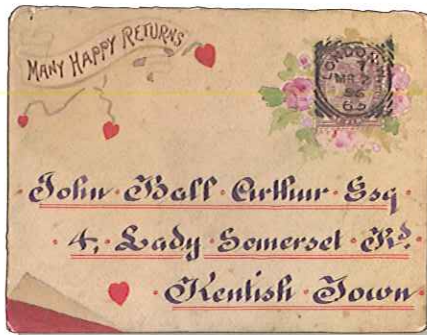 MANY HAPPY RETURNS
LONDON·N.W
7
MR 2
96
65
John · Ball · Arthur · Esq ·
· 4, · Lady · Somerset · Rd ·
· Kentish · Town ·